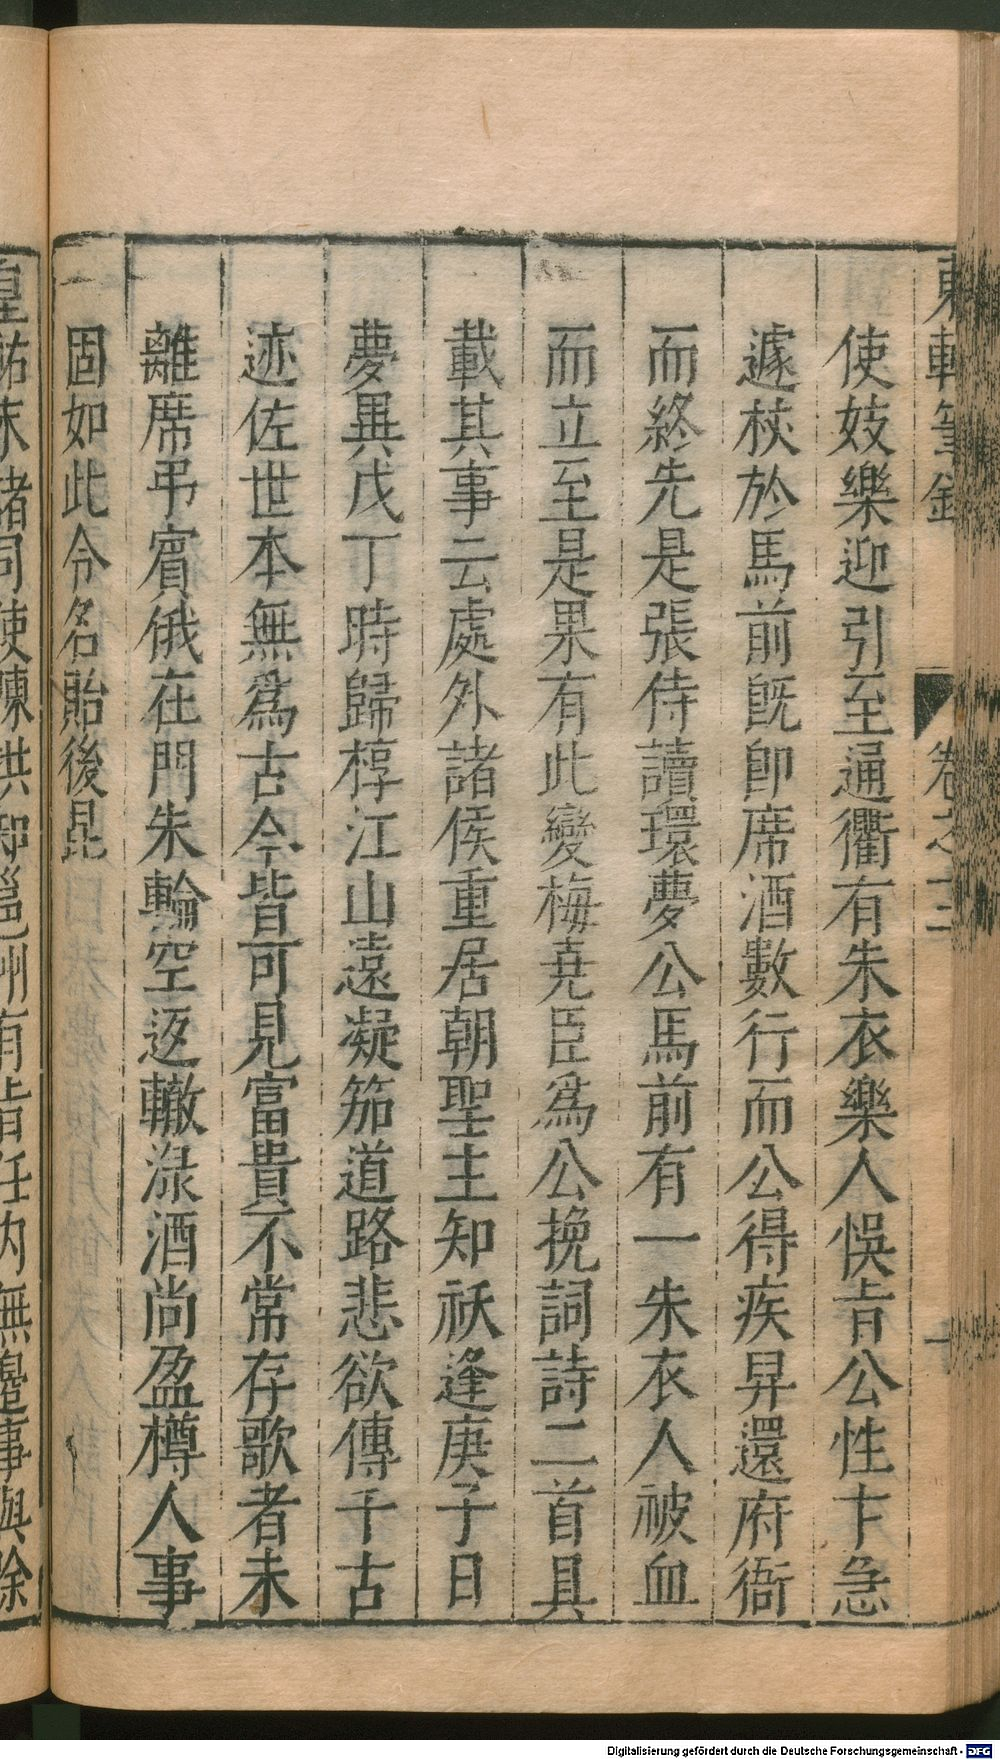 東軒筆錄
卷之十三
使妓樂迎引至通衢有朱衣樂人悞旨公性卞急
遽杖於馬前旣卽席酒數行而公得疾昇還府衙
而終先是張侍讀環夢公馬前有一朱衣人被血
而立至是果有此變梅堯臣爲公挽詞詩二首具
載其事云處外諸侯重居朝聖主知祅逢庚子日
夢異戊丁時歸椁江山遠凝笳道路悲欲傳千古
迹佐世本無爲古今皆可見富貴不常存歌者未
離席弔賓俄在門朱輪空返轍淥酒尚盈樽人事
固如此令名貽後昆
皇祐末諸司使陳洪知邕州有旨任內無邊事與除
Digitalisierung gefördert durch die Deutsche Forschungsgemeinschaft - DFG